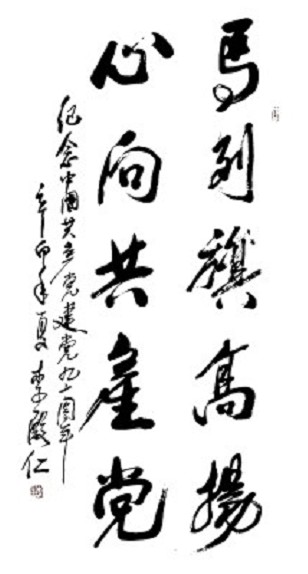 馬列旗高揚
心向共產党
纪念中國共产党建党九十周年
辛卯年夏李殿仁